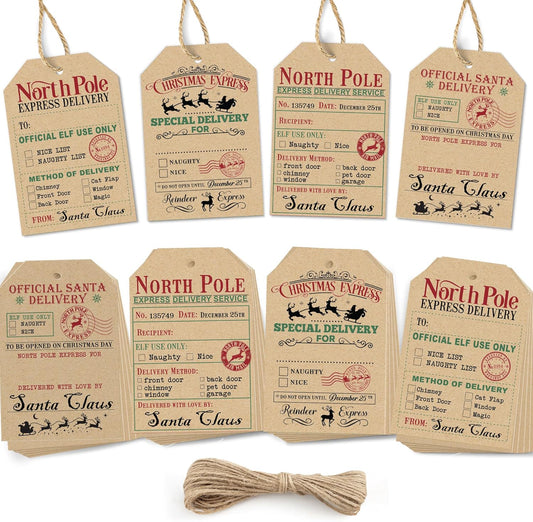 North Pole
EXPRESS DELIVERY
TO:
OFFICIAL ELF USE ONLY
NICE LIST
NAUGHTY LIST
METHOD OF DELIVERY
Chimney Cat Flap
Front Door Window
Back Door Magic
FROM: Santa Claus
CHRISTMAS EXPRESS
SPECIAL DELIVERY
FOR
NAUGHTY
NICE
* DO NOT OPEN UNTIL December 25 TH
Reindeer Express
NORTH POLE
EXPRESS DELIVERY SERVICE
No. 135749 DATE: DECEMBER 25TH
RECIPIENT:
ELF USE ONLY:
Naughty Nice
NORTH POLE
DELIVERY METHOD:
front door back door
chimney pet door
window garage
DELIVERED WITH LOVE BY:
Santa Claus
OFFICIAL SANTA
DELIVERY
ELF USE ONLY
NAUGHTY
NICE
NORTH POLE
EXPRESS
TO BE OPENED ON CHRISTMAS DAY
NORTH POLE EXPRESS FOR
DELIVERED WITH LOVE BY
Santa Claus
OFFICIAL SANTA
DELIVERY
ELF USE ONLY
NAUGHTY
NICE
NORTH POLE
EXPRESS
TO BE OPENED ON CHRISTMAS DAY
NORTH POLE EXPRESS FOR
DELIVERED WITH LOVE BY
Santa Claus
NORTH POLE
EXPRESS DELIVERY SERVICE
No. 135749 DATE: DECEMBER 25TH
RECIPIENT:
ELF USE ONLY:
Naughty Nice
NORTH POLE
DELIVERY METHOD:
front door back door
chimney pet door
window garage
DELIVERED WITH LOVE BY:
Santa Claus
CHRISTMAS EXPRESS
SPECIAL DELIVERY
FOR
NAUGHTY
NICE
* DO NOT OPEN UNTIL December 25 TH
Reindeer Express
North Pole
EXPRESS DELIVERY
TO:
OFFICIAL ELF USE ONLY
NICE LIST
NAUGHTY LIST
METHOD OF DELIVERY
Chimney Cat Flap
Front Door Window
Back Door Magic
FROM: Santa Claus